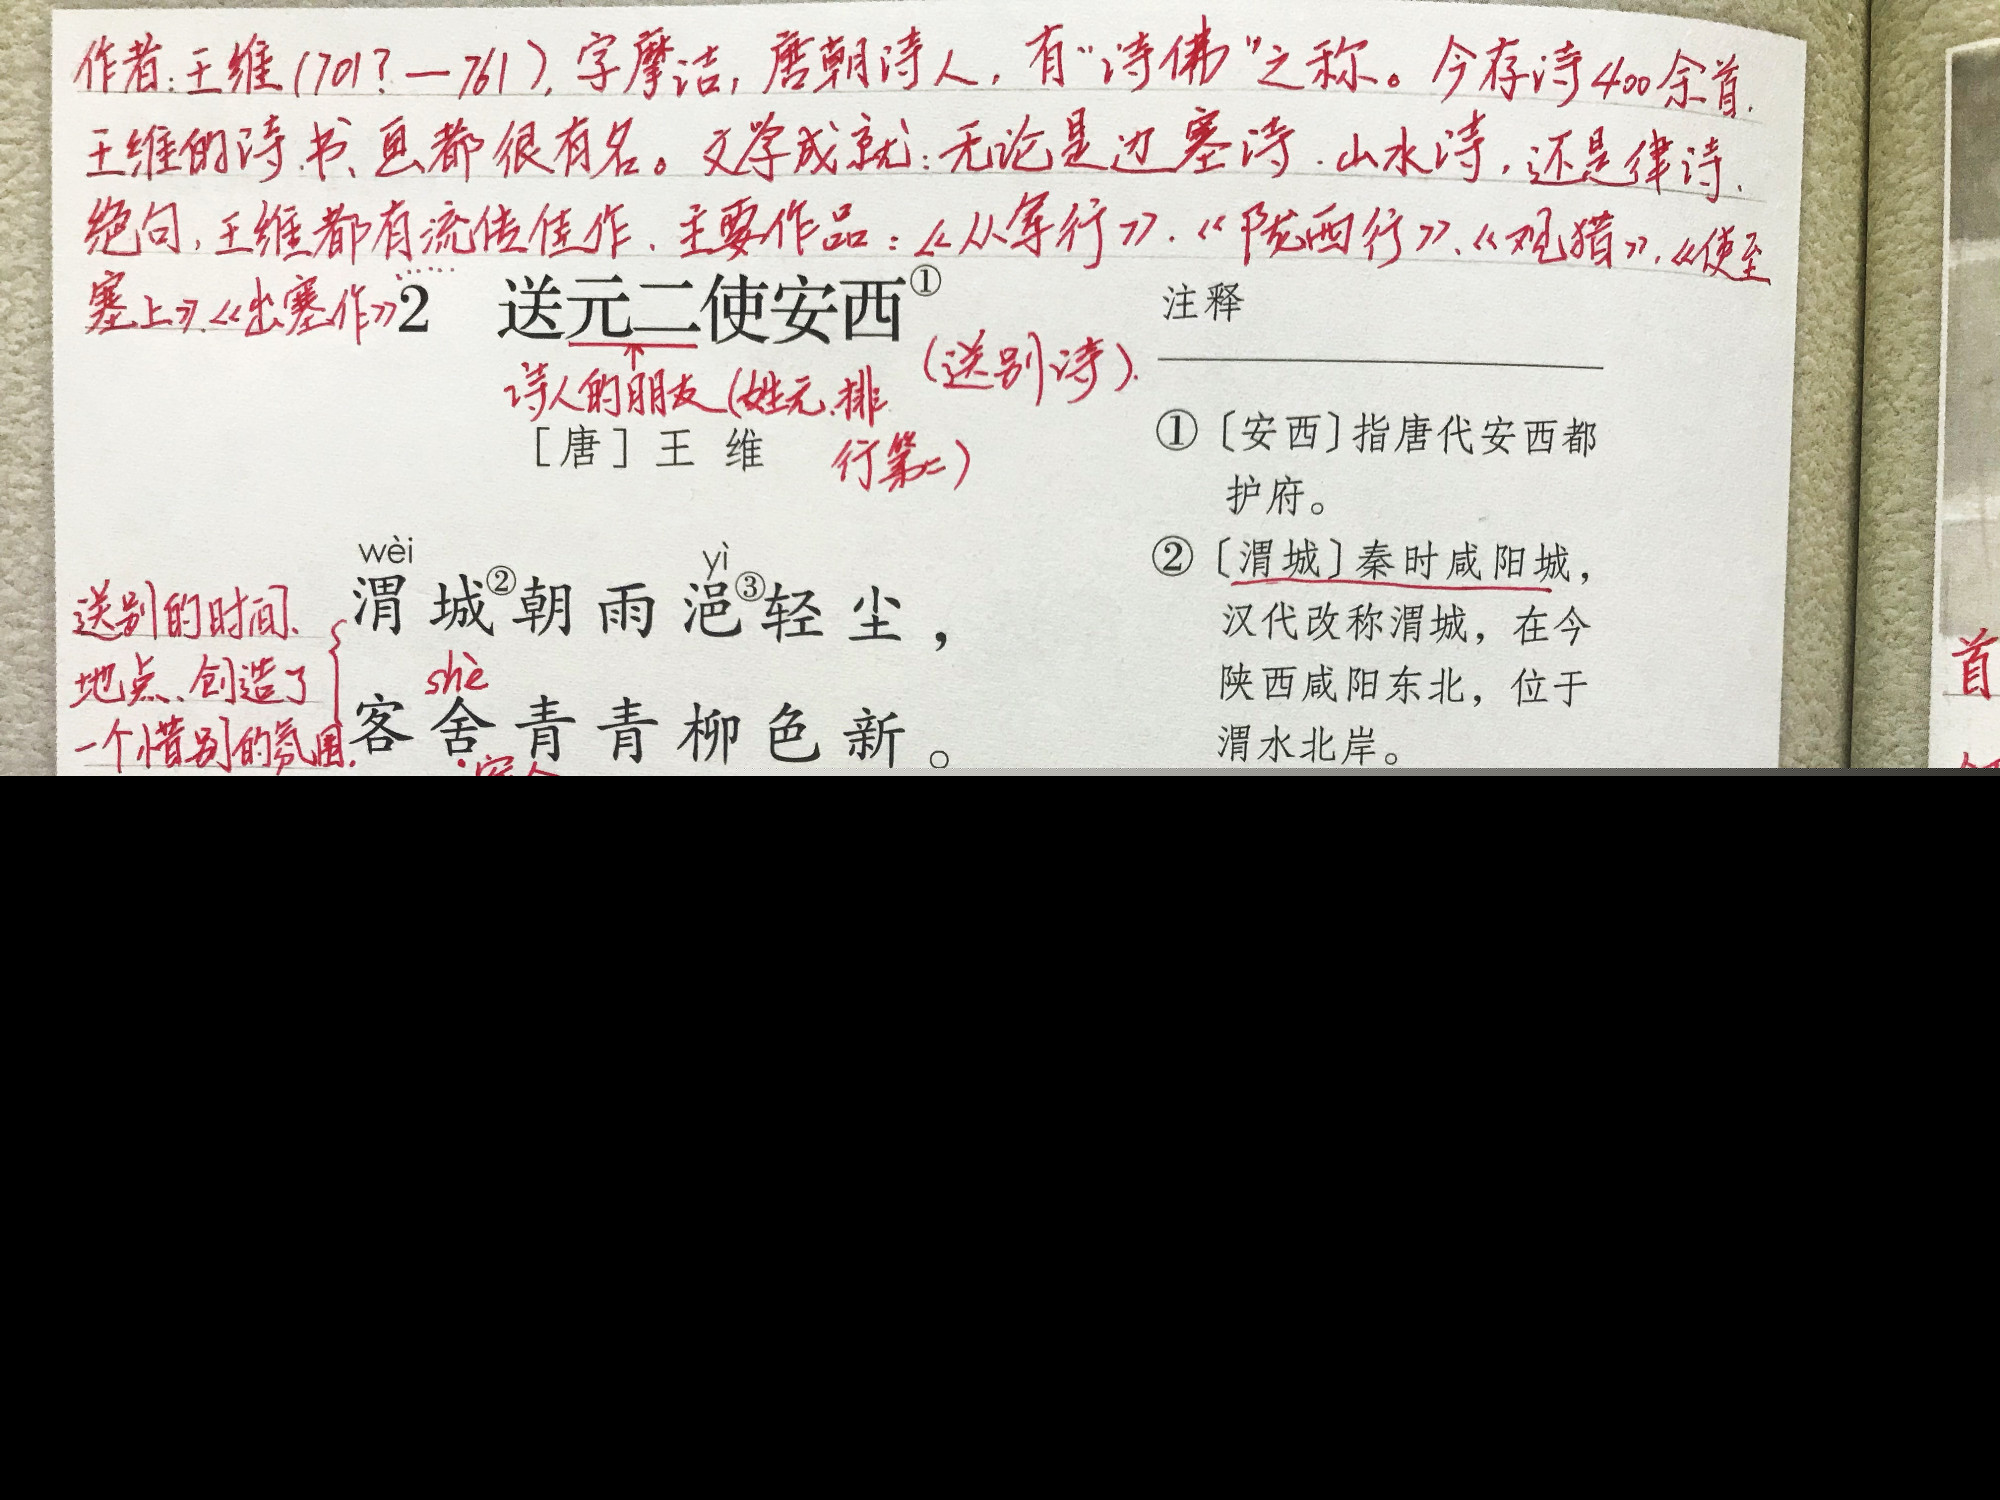 作者:王维(701?—761),字摩洁,唐朝诗人,有“诗佛”之称。今存诗400余首.
王维的诗、书、画都很有名。文学成就:无论是边塞诗、山水诗,还是律诗、
绝句,王维都有流传佳作、主要作品:《从军行》、《陇西行》、《观猎》、《使至
塞上》、《出塞作》
2 送元二使安西①
(送别诗).
诗人的朋友(姓元、排
行第二)
[唐] 王 维
wèi yì
渭城②朝雨浥③轻尘,
shè
客舍青青柳色新。
送别的时间、
地点、创造了
一个惜别的氛围.
注释
①〔安西〕指唐代安西都
护府。
②〔渭城〕秦时咸阳城,
汉代改称渭城,在今
陕西咸阳东北,位于
渭水北岸。
首